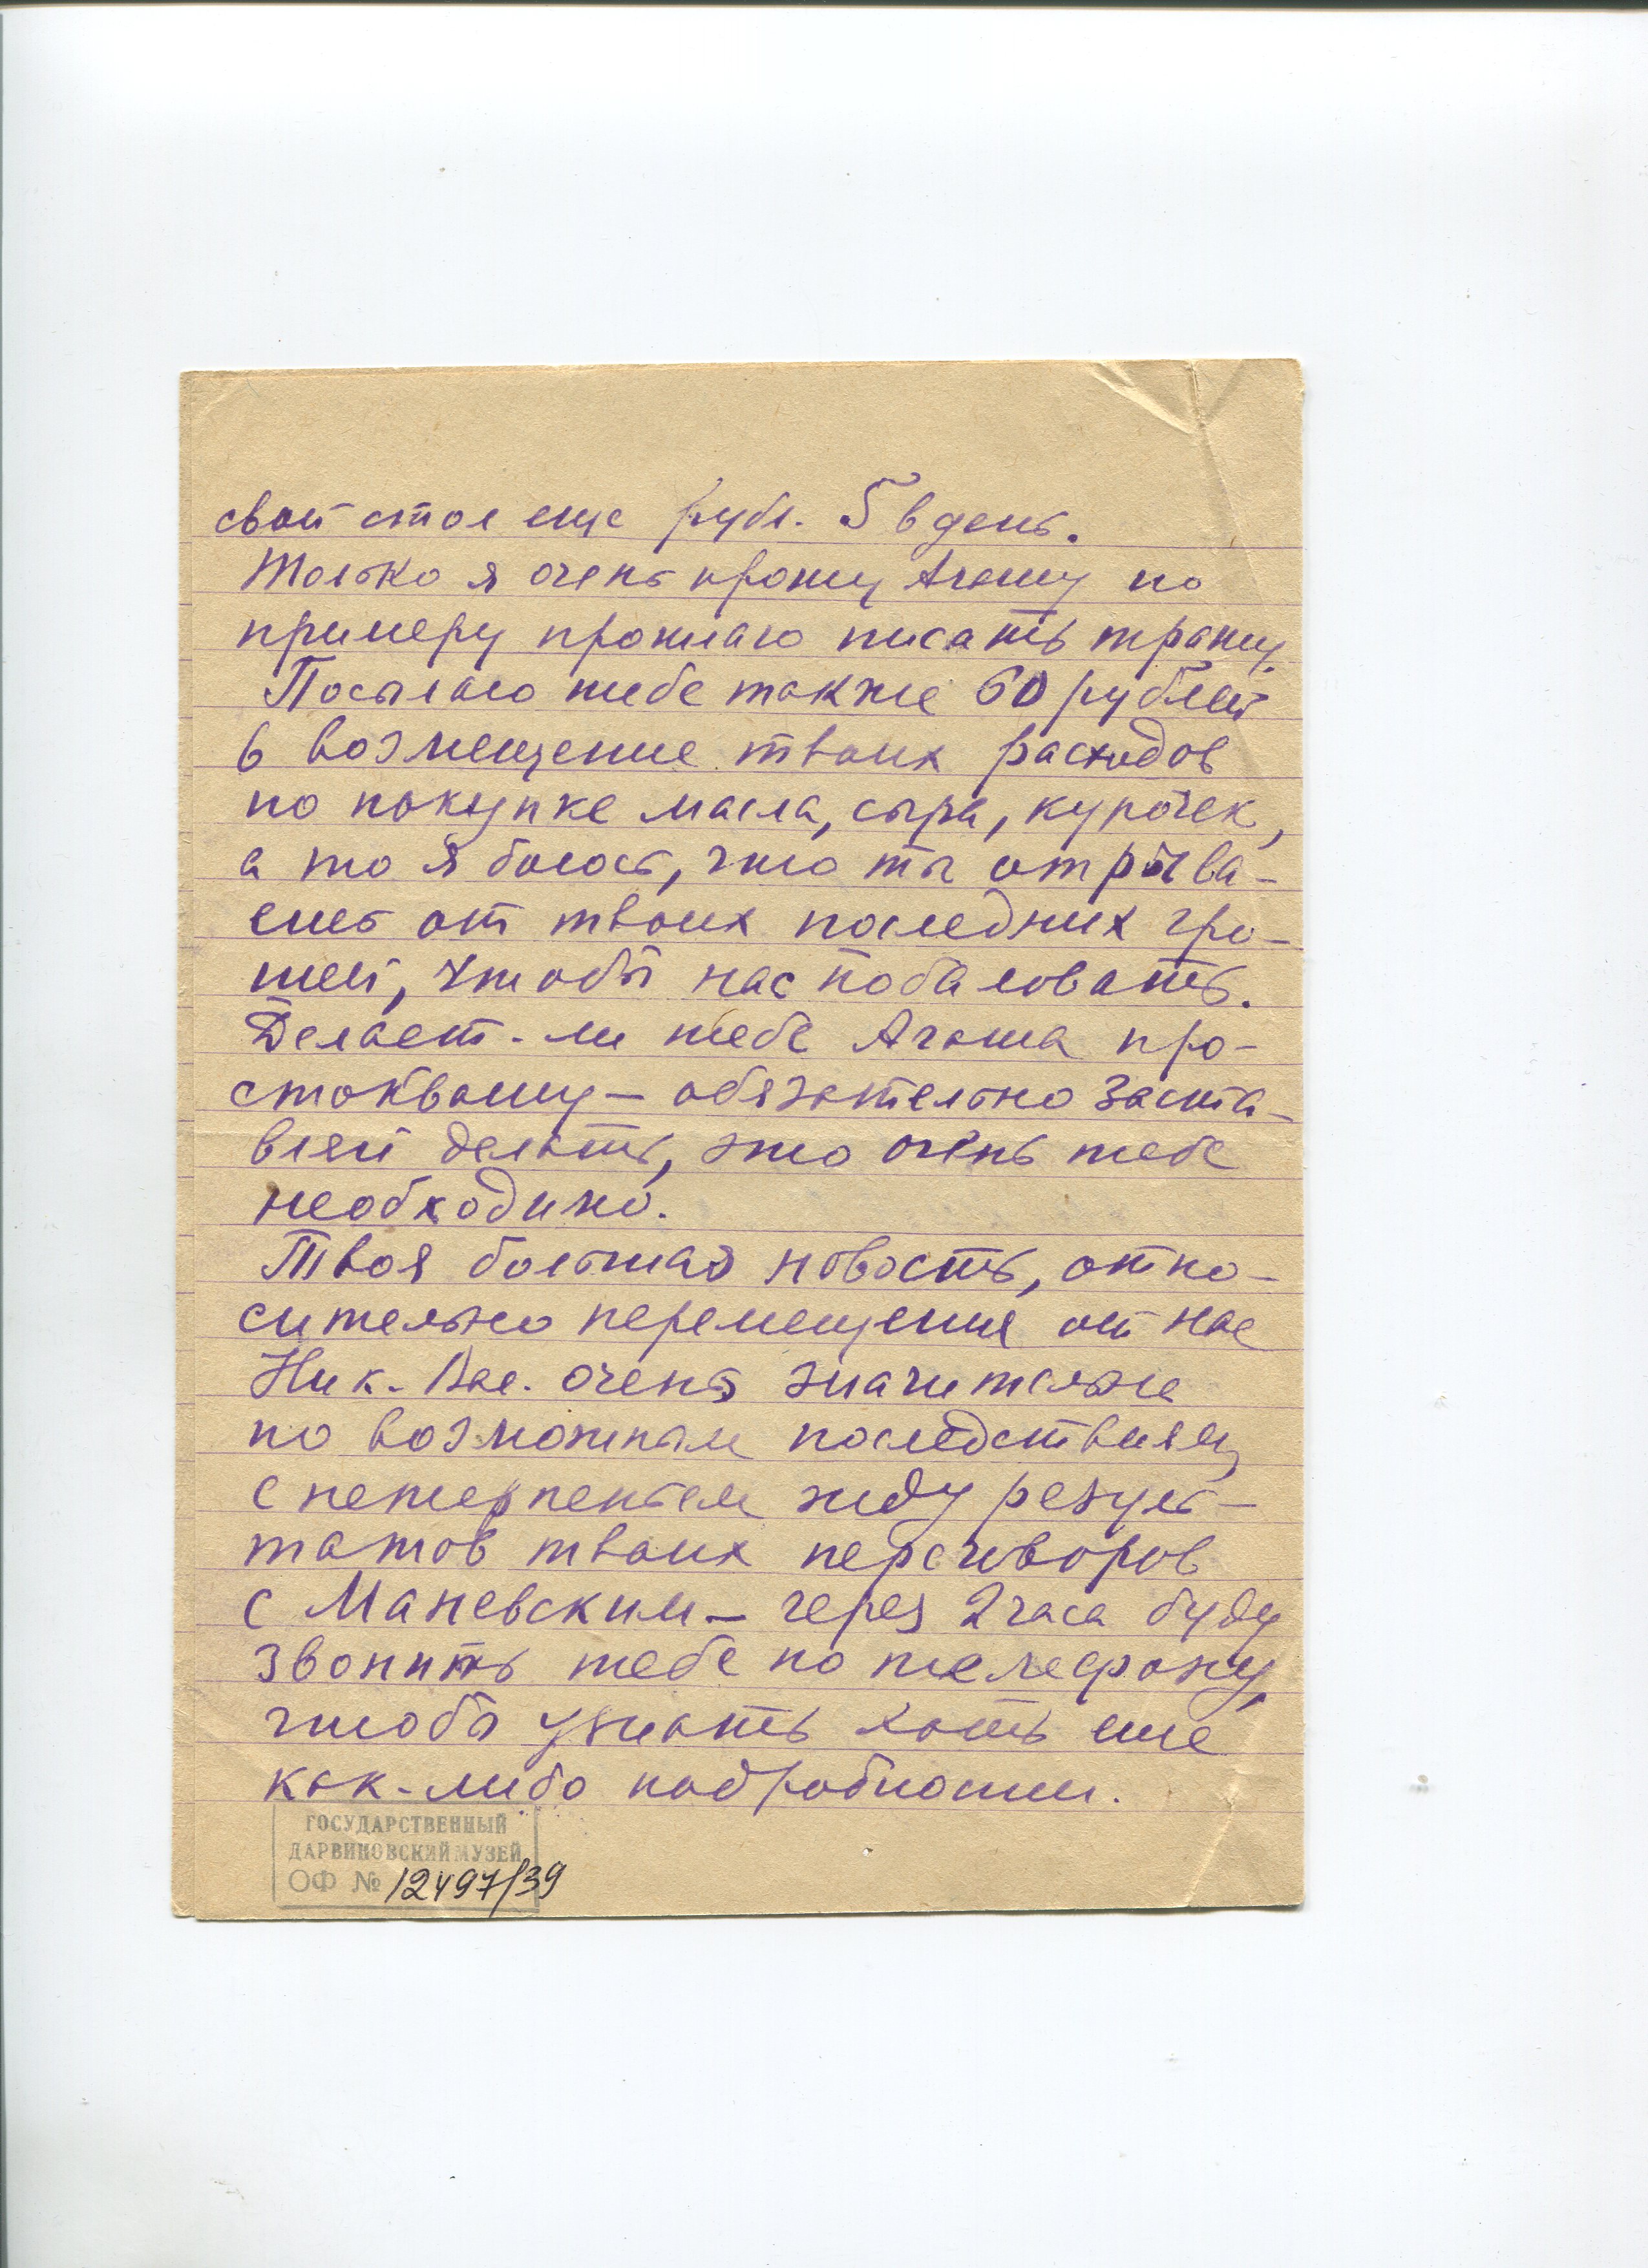 свой стол еще рубл. 5 в день.
Только я очень прошу Агашу по
примеру прошлаго писать трату.
Посылаю тебе также 60 рублей
в возмещение твоих расходов
по покупке масла, сыра, курочек,
а то я боюсь, что ты отрыва-
ешь от твоих последних гро-
шей, чтобы нас побаловать.
Делает-ли тебе Агаша про-
стоквашу – обязательно заста-
вляй делать, это очень тебе
необходимо.
Твоя большая новость, отно-
сительно перемещения от нас
Ник. Вас. очень значительна
по возможным последствиям,
с нетерпеньем жду резуль-
татов твоих переговоров
с Маневским – через 2 часа буду
звонить тебе по телефону,
чтобы узнать хоть еще
как-либо подробности.
ГОСУДАРСТВЕННЫЙ
ДАРВИНОВСКИЙ МУЗЕЙ
ОФ № 12497/39